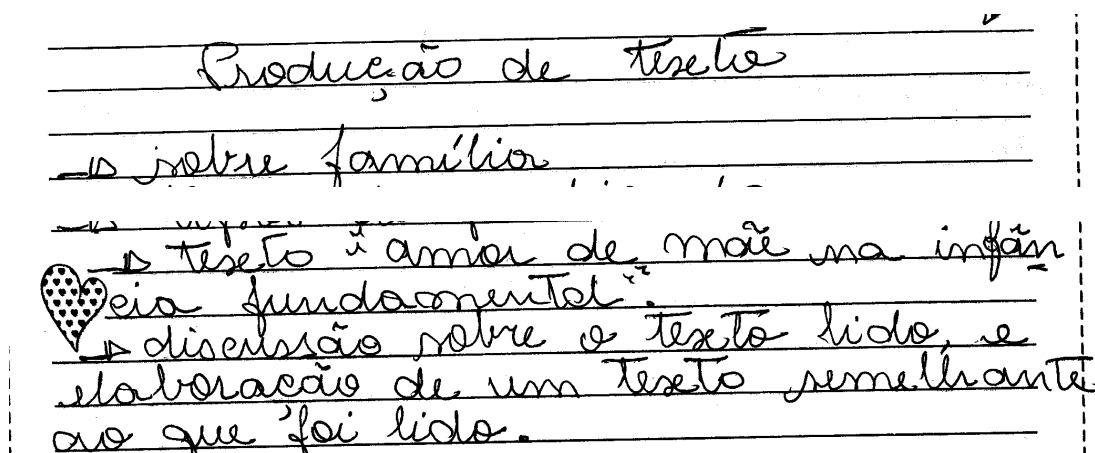 Produção de texto
→ sobre família
→ texto "amor de mãe na infân
cia fundamental".
→ discussão sobre o texto lido, e
elaboração de um texto semelhante
ao que foi lido.